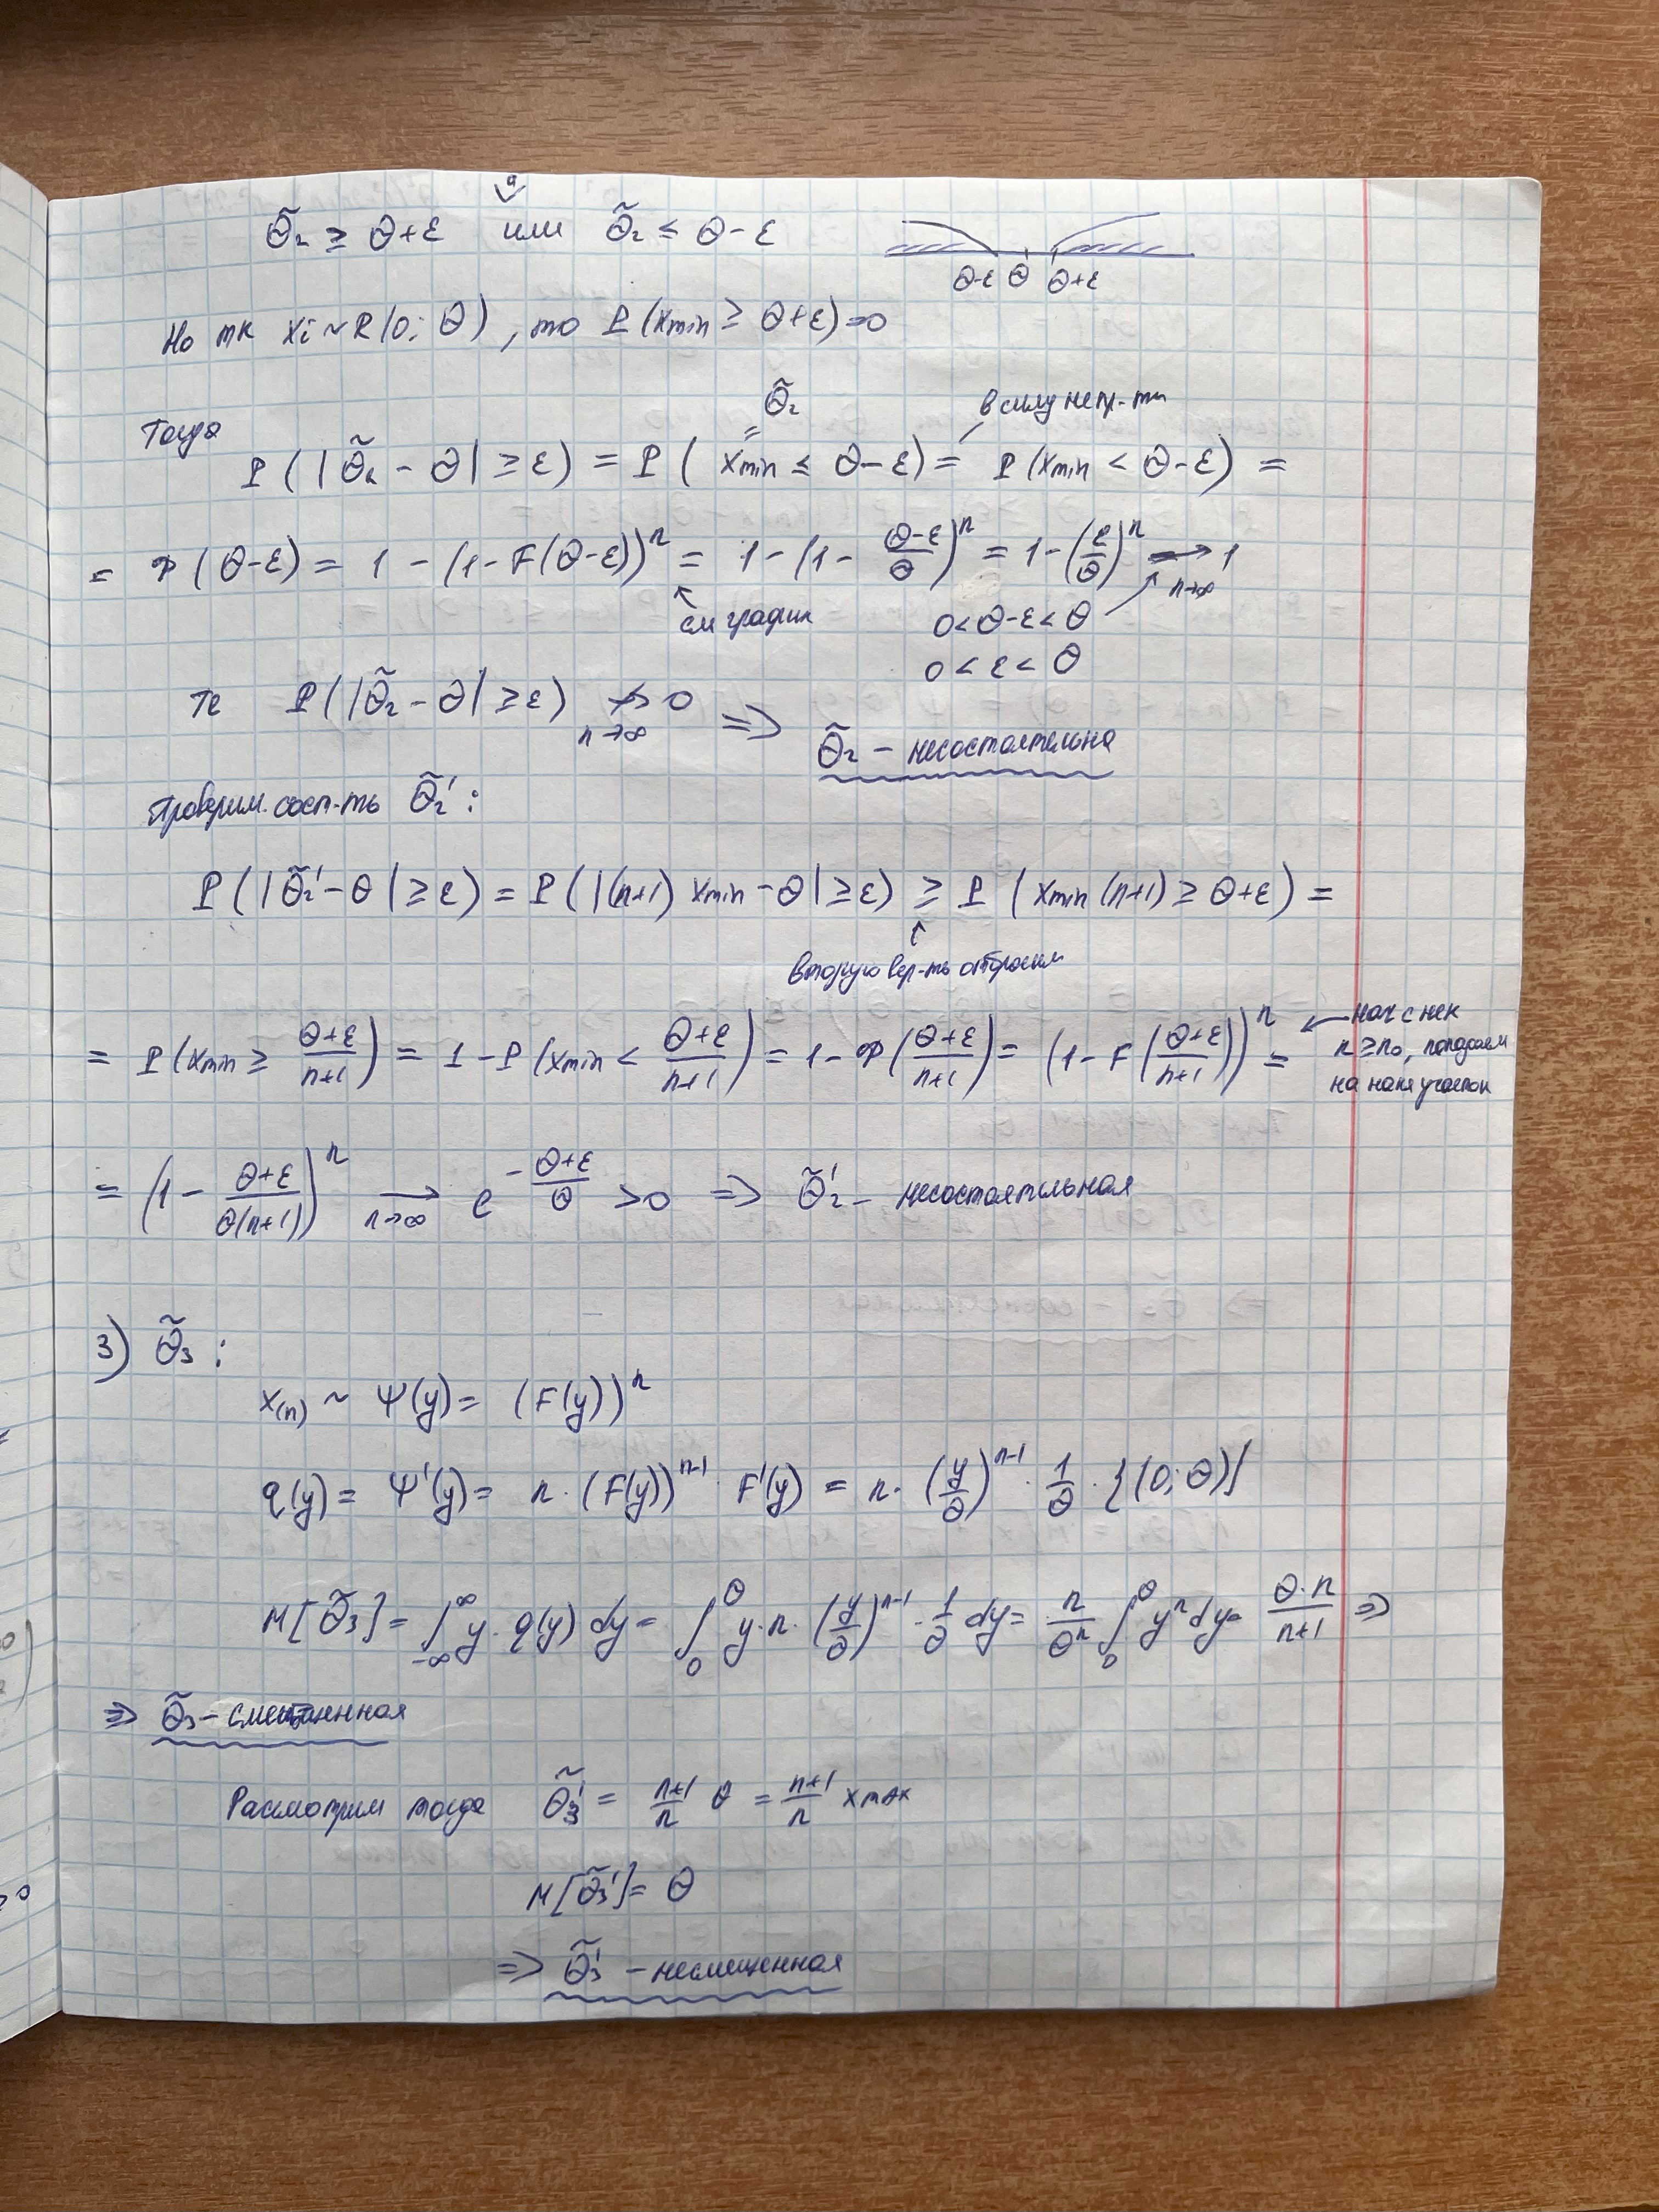 θ̃₂ ≥ θ+ε или θ̃₂ ≤ θ-ε
θ-ε θ θ+ε
Но тк xᵢ ~ R(0; θ), то P(xmin ≥ θ+ε)=0
θ̃₂ в силу непр-ти
Тогда
P(|θ̃₂ - θ| ≥ ε) = P(xmin ≤ θ-ε) = P(xmin < θ-ε) =
= φ(θ-ε) = 1 - (1-F(θ-ε))ⁿ = 1 - (1 - (θ-ε)/θ)ⁿ = 1 - (ε/θ)ⁿ → 1
n→∞
см график 0<θ-ε<θ
0<ε<θ
Те P(|θ̃₂ - θ| ≥ ε) ↛ 0 ⇒ θ̃₂ - несостоятельна
n→∞
Проверим сост-ть θ̃₂':
P(|θ̃₂' - θ| ≥ ε) = P(|(n+1) xmin - θ| ≥ ε) ≥ P(xmin (n+1) ≥ θ+ε) =
вторую вер-ть отбросим
= P(xmin ≥ (θ+ε)/(n+1)) = 1 - P(xmin < (θ+ε)/(n+1)) = 1 - φ((θ+ε)/(n+1)) = (1 - F((θ+ε)/(n+1)))ⁿ =
нач с нек
n ≥ n₀, попадаем
на накл участок
= (1 - (θ+ε)/(θ(n+1)))ⁿ → e^(-(θ+ε)/θ) > 0 ⇒ θ̃₂' - несостоятельная
n→∞
3) θ̃₃:
x₍ₙ₎ ~ Ψ(y) = (F(y))ⁿ
q(y) = Ψ'(y) = n · (F(y))ⁿ⁻¹ · F'(y) = n · (y/θ)ⁿ⁻¹ · 1/θ · {(0; θ)}
M[θ̃₃] = ∫_{-∞}^{∞} y · q(y) dy = ∫₀^θ y · n · (y/θ)ⁿ⁻¹ · 1/θ dy = n/θⁿ ∫₀^θ yⁿ dy = θ·n/(n+1) ⇒
⇒ θ̃₃ - смещенная
Расмотрим тогда θ̃₃' = (n+1)/n θ = (n+1)/n xmax
M[θ̃₃'] = θ
⇒ θ̃₃' - несмещенная